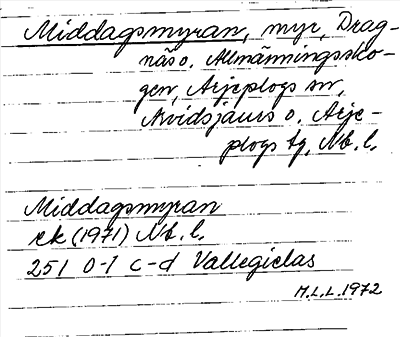 Middagsmyran, myr, Drag-
näs o. Allmänningssko-
gen, Arjeplogs sn,
Arvidsjaurs o. Arje-
plogs tg, Nb. l.
Middagsmyran
ek (1971) Nb. l.
251 0-1 c-d Vallegielas
M.L.L. 1972